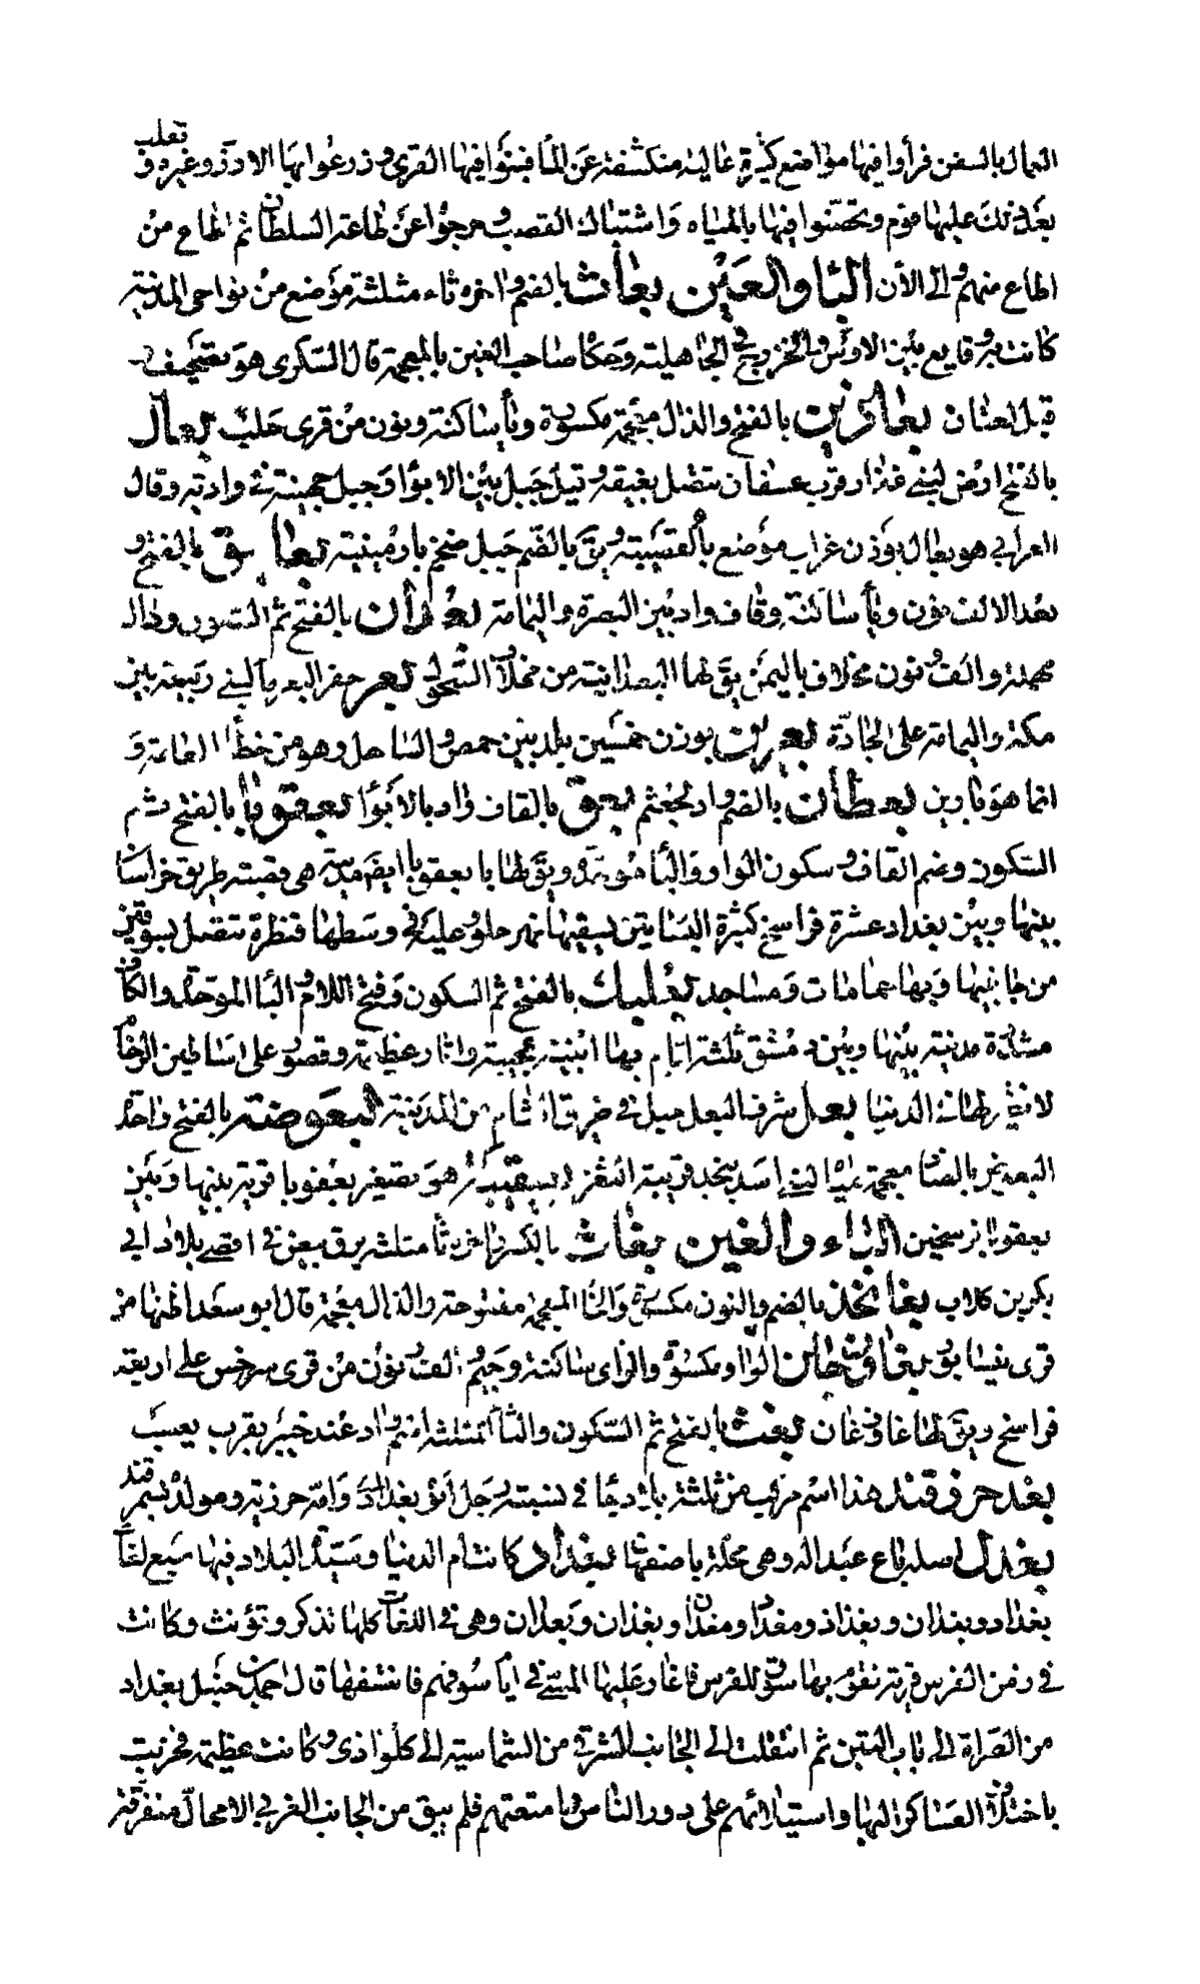 العمال بالسفن فرأوا فيها مواضع كثيرة عالية منكشفة عن الما فبنوا فيها القرى و زرعوا بها الارز وغيره و تغلب
بعد ذلك عليها قوم وتحصنوا فيها بالمياه واشتباك القصب وخرجوا عن طاعة السلطان ثم اطاع من
اطاع منهم والى الآن البا والعين بعاث بالضم و اخره ثاء مثلثة موضع من نواحى المدينة
كانت به وقايع بين الاوس والخزرج فى الجاهلية وحكا صاحب العين بالمعجمة قال السكرى هو تصحيف
بعاذين بالفتح والذال معجمة مكسورة ويا ساكنة ونون من قرى حلب بعال
بالفتح ارض لبنى غفار قرب عسفان تتصل بغيقة وقيل جبل بين الابوا وجبل جهينة فى واديه وقال
العرانى هو بعال بوزن غراب موضع بالقصيبة ويق بالضم جبل ضخم بارمينية بعانيق بالفتح و
بعد الالف نون ويا ساكنة وقاف واد بين البصرة واليمامة بعدان بالفتح ثم السكون ودال
مهملة والف ونون مخلاف باليمن يق لها البعدانية من مخلاف السحول بعر حفر البعر ما لبنى ربيعة بين
مكة واليمامة على الجادة بعرين بوزن خمسين بليد بين حمص والساحل وهو من خطأ العامة و
انما هو بارين بعطان بالضم واد لخثعم بعق بالقاف واد بالابوا بعقوبا بالفتح ثم
السكون وضم القاف وسكون الواو والبا موحدة ويق لها باعقوبا ايضا مدينة هى قصبة طريق خراسان
بينها وبين بغداد عشرة فراسخ كثيرة البساتين يسقيها نهر جلولا عليه فى وسطها قنطرة تتصل بسوقين
من جانبيها وبها حمامات ومساجد بعلبك بالفتح ثم السكون وفتح اللام والبا الموحدة والكاف
مشددة مدينة بينها وبين دمشق ثلثة ايام بها ابنية عجيبة واثار عظيمة وقصور على اساطين الرخام
لا نظير لها فى الدنيا بعل شرف البعل جبل فى طريق الشام من المدينة البعوضة بالفتح واحد
البعوض بالضاد معجمة ماء لبنى اسد بنجد قريبة القعر بعيقبة هو تصغير بعقوبا قرية بينها وبين
بعقوبا فرسخين الباء والغين بغاث بالكسر واخره ثا مثلثة برق بيض فى اقصى بلاد ابى
بكر بن كلاب بغانخذ بالضم والنون مكسورة والخا المعجمة مفتوحة والذال معجمة قال ابو سعد اظنها من
قرى نيسابور بغاوزجان الواو مكسورة والزاى ساكنة وجيم والف ونون من قرى سرخس على اربعة
فراسخ ويق لها غاوزغان بغث بالفتح ثم السكون والثا المثلثة اسم واد عند خيبر بقرب بغيث
بغدحزرقند هذا اسم مركب من ثلثة بلاد جا فى نسبة رجل ابوه بغدادى وامه حزرية ومولده بسمرقند
بغدل اصله باغ عبد الله وهى محلة باصفهان بغداد كانت ام الدنيا وسيدة البلاد فيها سبع لغات
بغداد وبغدان وبغداذ ومغداد ومغدان وبغذان وبعدان وهى فى اللغات كلها تذكر وتؤنث وكانت
فى زمن الفرس قرية تقوم بها سوق للفرس فاغار عليها المثنى فى ايام سوقهم فانتسفها قال احمد بن حنبل بغداد
من الصراة الى باب التبن ثم انتقلت الى الجانب الشرقى من الشماسية الى كلواذى وكانت عظيمة فخربت
باختلاف العساكر اليها واستيلائهم على دور الناس وبا متعتهم فلم يبق من الجانب الغربى الا محال متفرقة